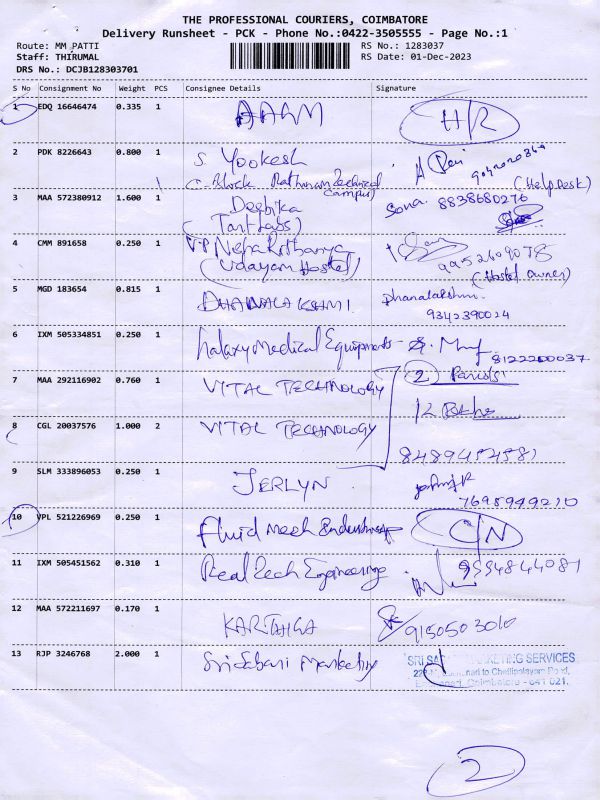 THE PROFESSIONAL COURIERS, COIMBATORE
Delivery Runsheet - PCK - Phone No.:0422-3505555 - Page No.:1
Route: MM PATTI RS No.: 1283037
Staff: THIRUMAL RS Date: 01-Dec-2023
DRS No.: DCJB128303701
S No Consignment No Weight PCS Consignee Details Signature
1 EDQ 16646474 0.335 1 HR
2 PDK 8226643 0.800 1 S Yookesh
(Help Desk)
3 MAA 572380912 1.600 1 Deepika Sona 8838680276
4 CMM 891658 0.250 1
(Udayam Hostel) (Hostel owner)
5 MGD 183654 0.815 1 DHANALAKSHMI Dhanalakshmi
9342390024
6 IXM 505334851 0.250 1 Galaxy Medical Equipments 8122200037
7 MAA 292116902 0.760 1 VITAL TECHNOLOGY 2
8 CGL 20037576 1.000 2 VITAL TECHNOLOGY
9 SLM 333896053 0.250 1 JERLYN
10 VPL 521226969 0.250 1 Fluid Mech C/N
11 IXM 505451562 0.310 1 Real Tech Engineering 9994844081
12 MAA 572211697 0.170 1 KARTHIGA 9150503010
13 RJP 3246768 2.000 1 Sri Sabari Marketing SRI MARKETING SERVICES
Chettipalayam Road,
Coimbatore - 641 021.
2